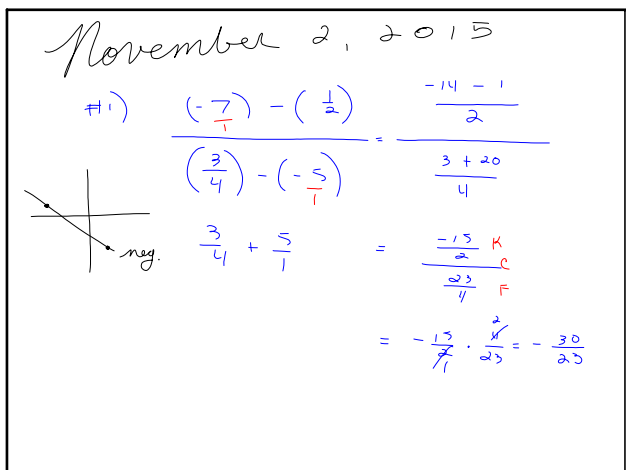 November 2, 2015
#1) ((-7/1) - (1/2)) / ((3/4) - (-5/1)) = ((-14 - 1)/2) / ((3 + 20)/4)
neg.
3/4 + 5/1 = (-15/2) / (23/4) K C F
= - 15/2 1 · 4 2/23 = - 30/23